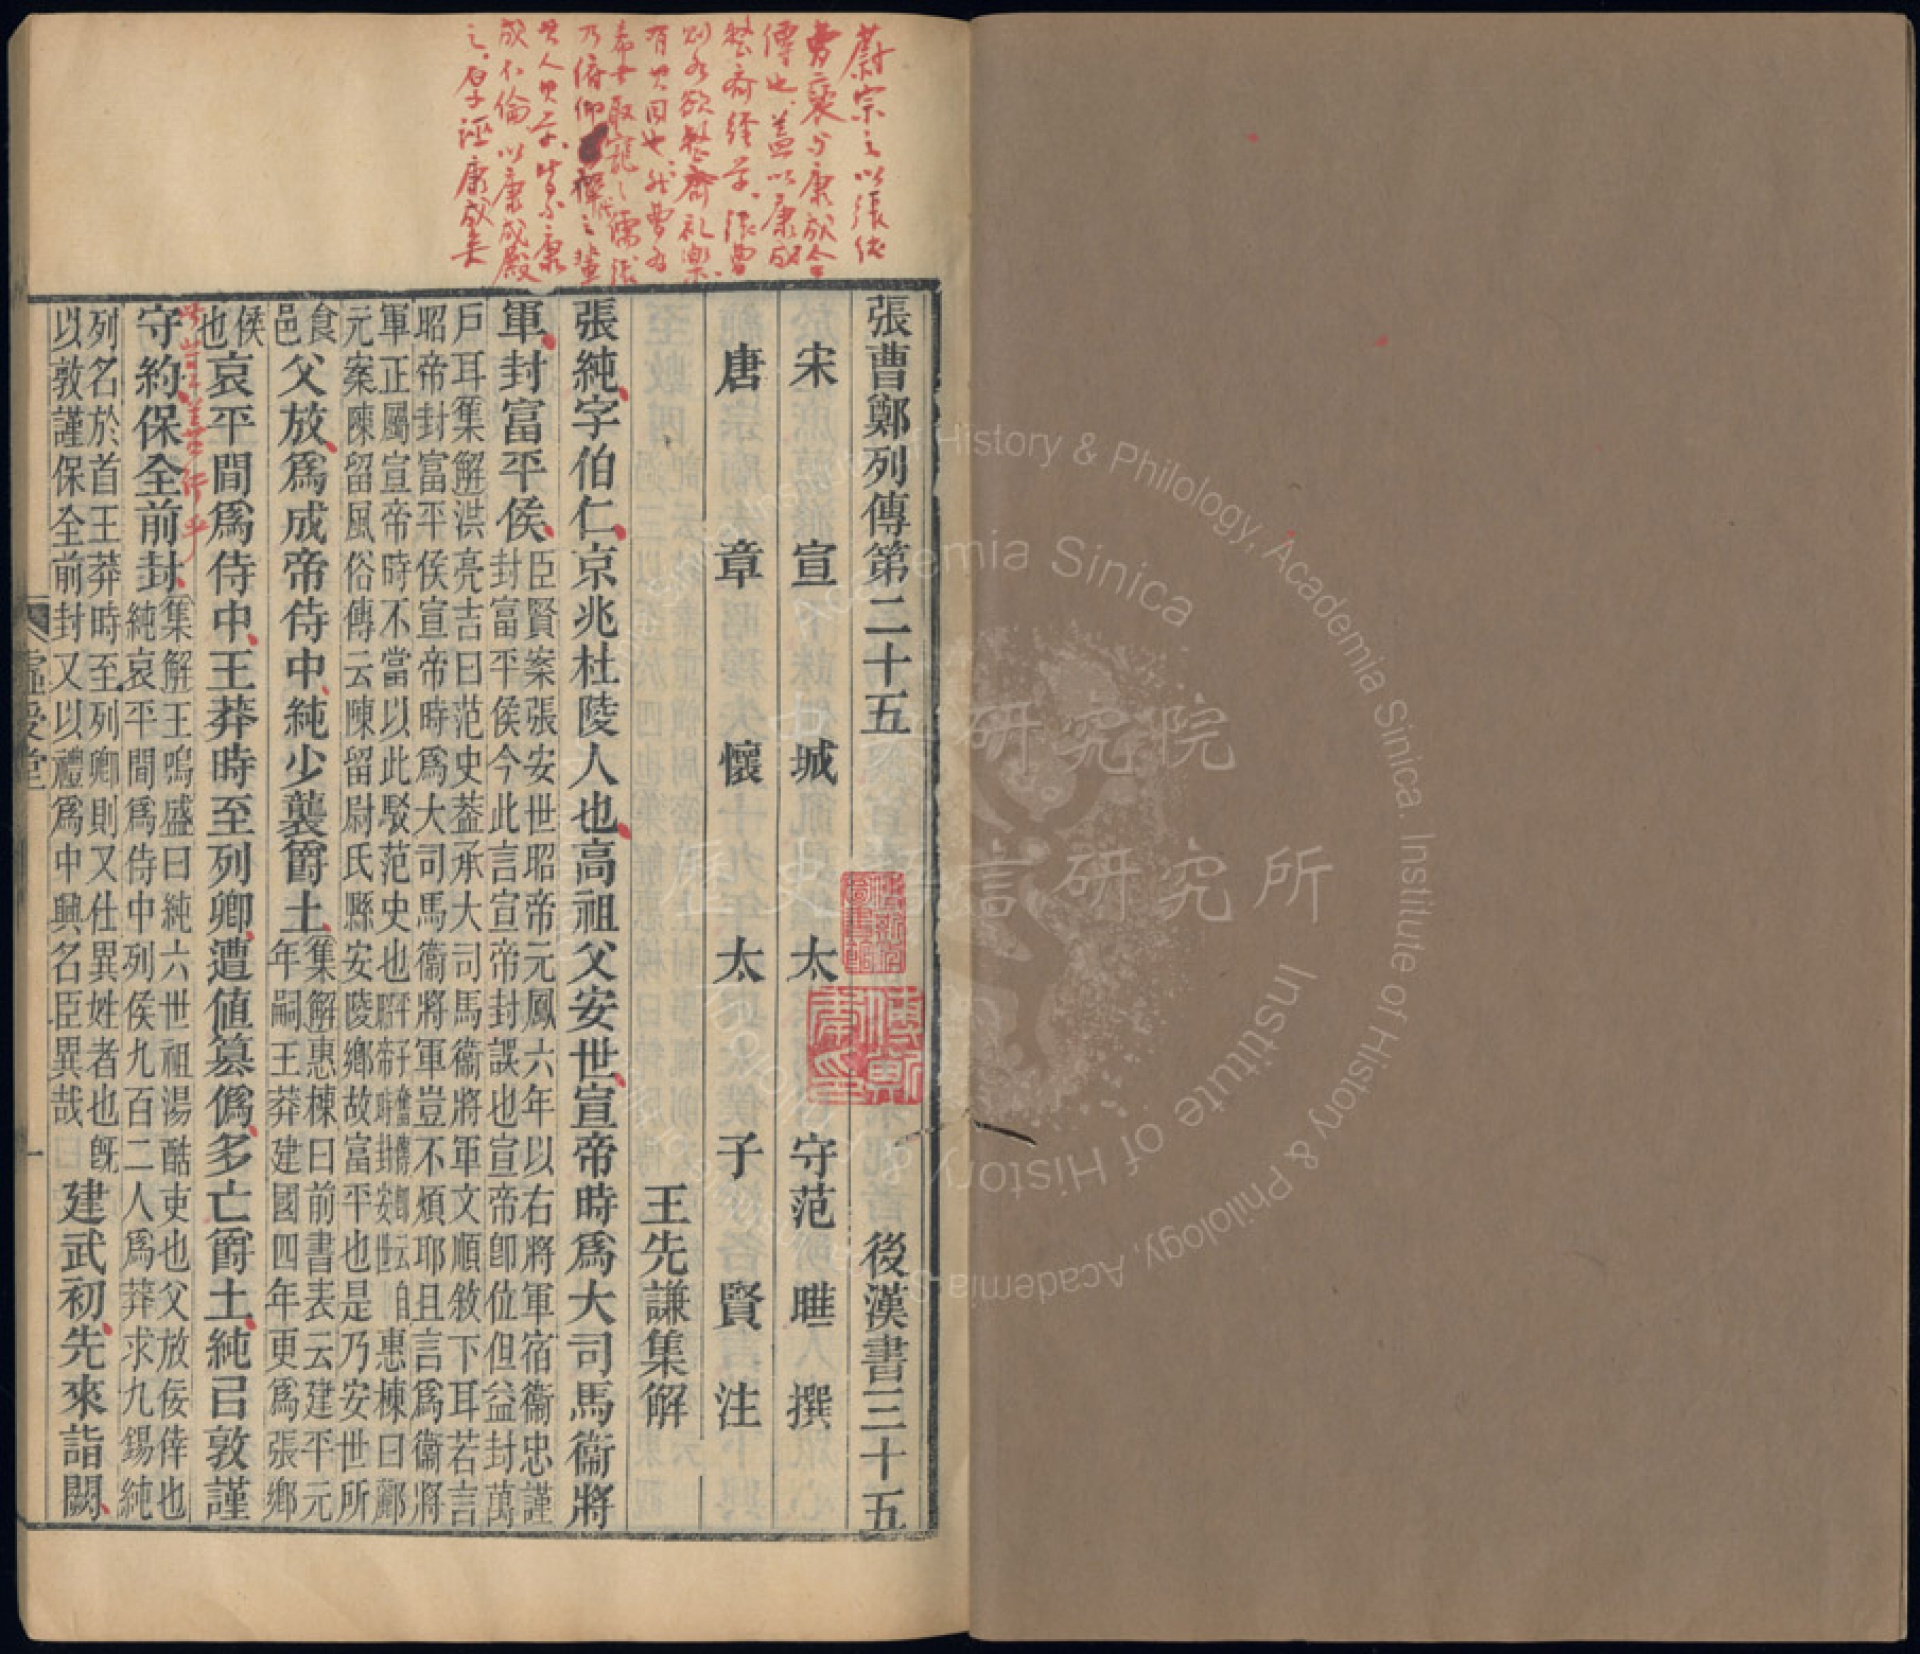 蔚宗之以張純
曹襃與康成合
傳也蓋以康成
整齊經
則 欲整齊禮樂
有其因也
取寵之儒張
乃俯仰 之輩
其人其 皆不 康
成不倫以康成殿
之 誣康成矣
張曹鄭列傳第二十五 後漢書三十五
宋宣城太守范曄撰
唐章懷太子賢注
王先謙集解
張純字伯仁京兆杜陵人也高祖父安世宣帝時爲大司馬衞將
軍封富平侯臣賢案張安世昭帝元鳳六年以右將軍宿衞忠謹
封富平侯今此言宣帝封誤也宣帝卽位但益封萬
戶耳集解洪亮吉曰范史葢承大司馬衞將軍文順敘下耳若言
昭帝封富平侯宣帝時爲大司馬衞將軍豈不煩耶且言爲衞將
軍正屬宣帝時不當以此駁范史也 惠棟曰酈
元案陳留風俗傳云陳留尉氏縣安陵鄉故富平也是乃安世所
食
邑父放爲成帝侍中純少襲爵土集解惠棟曰前書表云建平元
年嗣王莽建國四年更爲張鄉
侯
也哀平間爲侍中王莽時至列卿遭值篡僞多亡爵土純已敦謹
守約保全前封集解王鳴盛曰純六世祖湯酷吏也父放佞倖也
純哀平間爲侍中列侯九百二人爲莽求九錫純
列名於首王莽時至列卿則又仕異姓者也旣
以敦謹保全前封又以禮爲中興名臣異哉 建武初先來詣闕
虛受堂
一
史語言研究所
研究院
歷史語言研究所
Institute of History & Philology, Academia Sinica